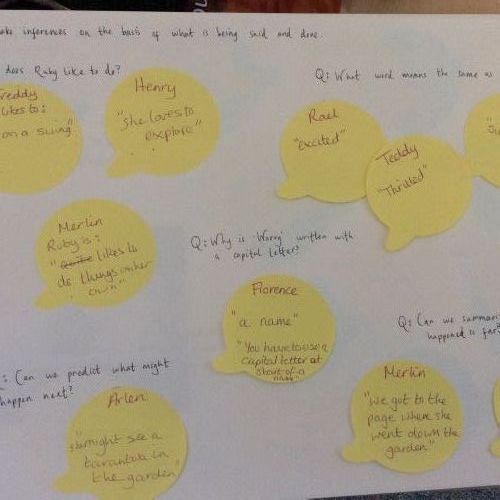 ake inferences on the basis of what is being said and done.
does Ruby like to do?
reddy
likes to:
on a swing"
Henry
"she loves to
explore"
Q: What word means the same as
Rael
"excited"
Teddy
"Thrilled"
Merlin
Ruby is:
" likes to
do things on her
own"
Q: Why is 'Worry' written with
a capital letter?
Florence
"a name"
"You have to use a
capital letter at
start of a
name"
Q: Can we summari
happened so far?
Merlin
"we got to the
page where she
went down the
garden"
: Can we predict what might
happen next?
Arlen
might see a
tarantula in
the garden"